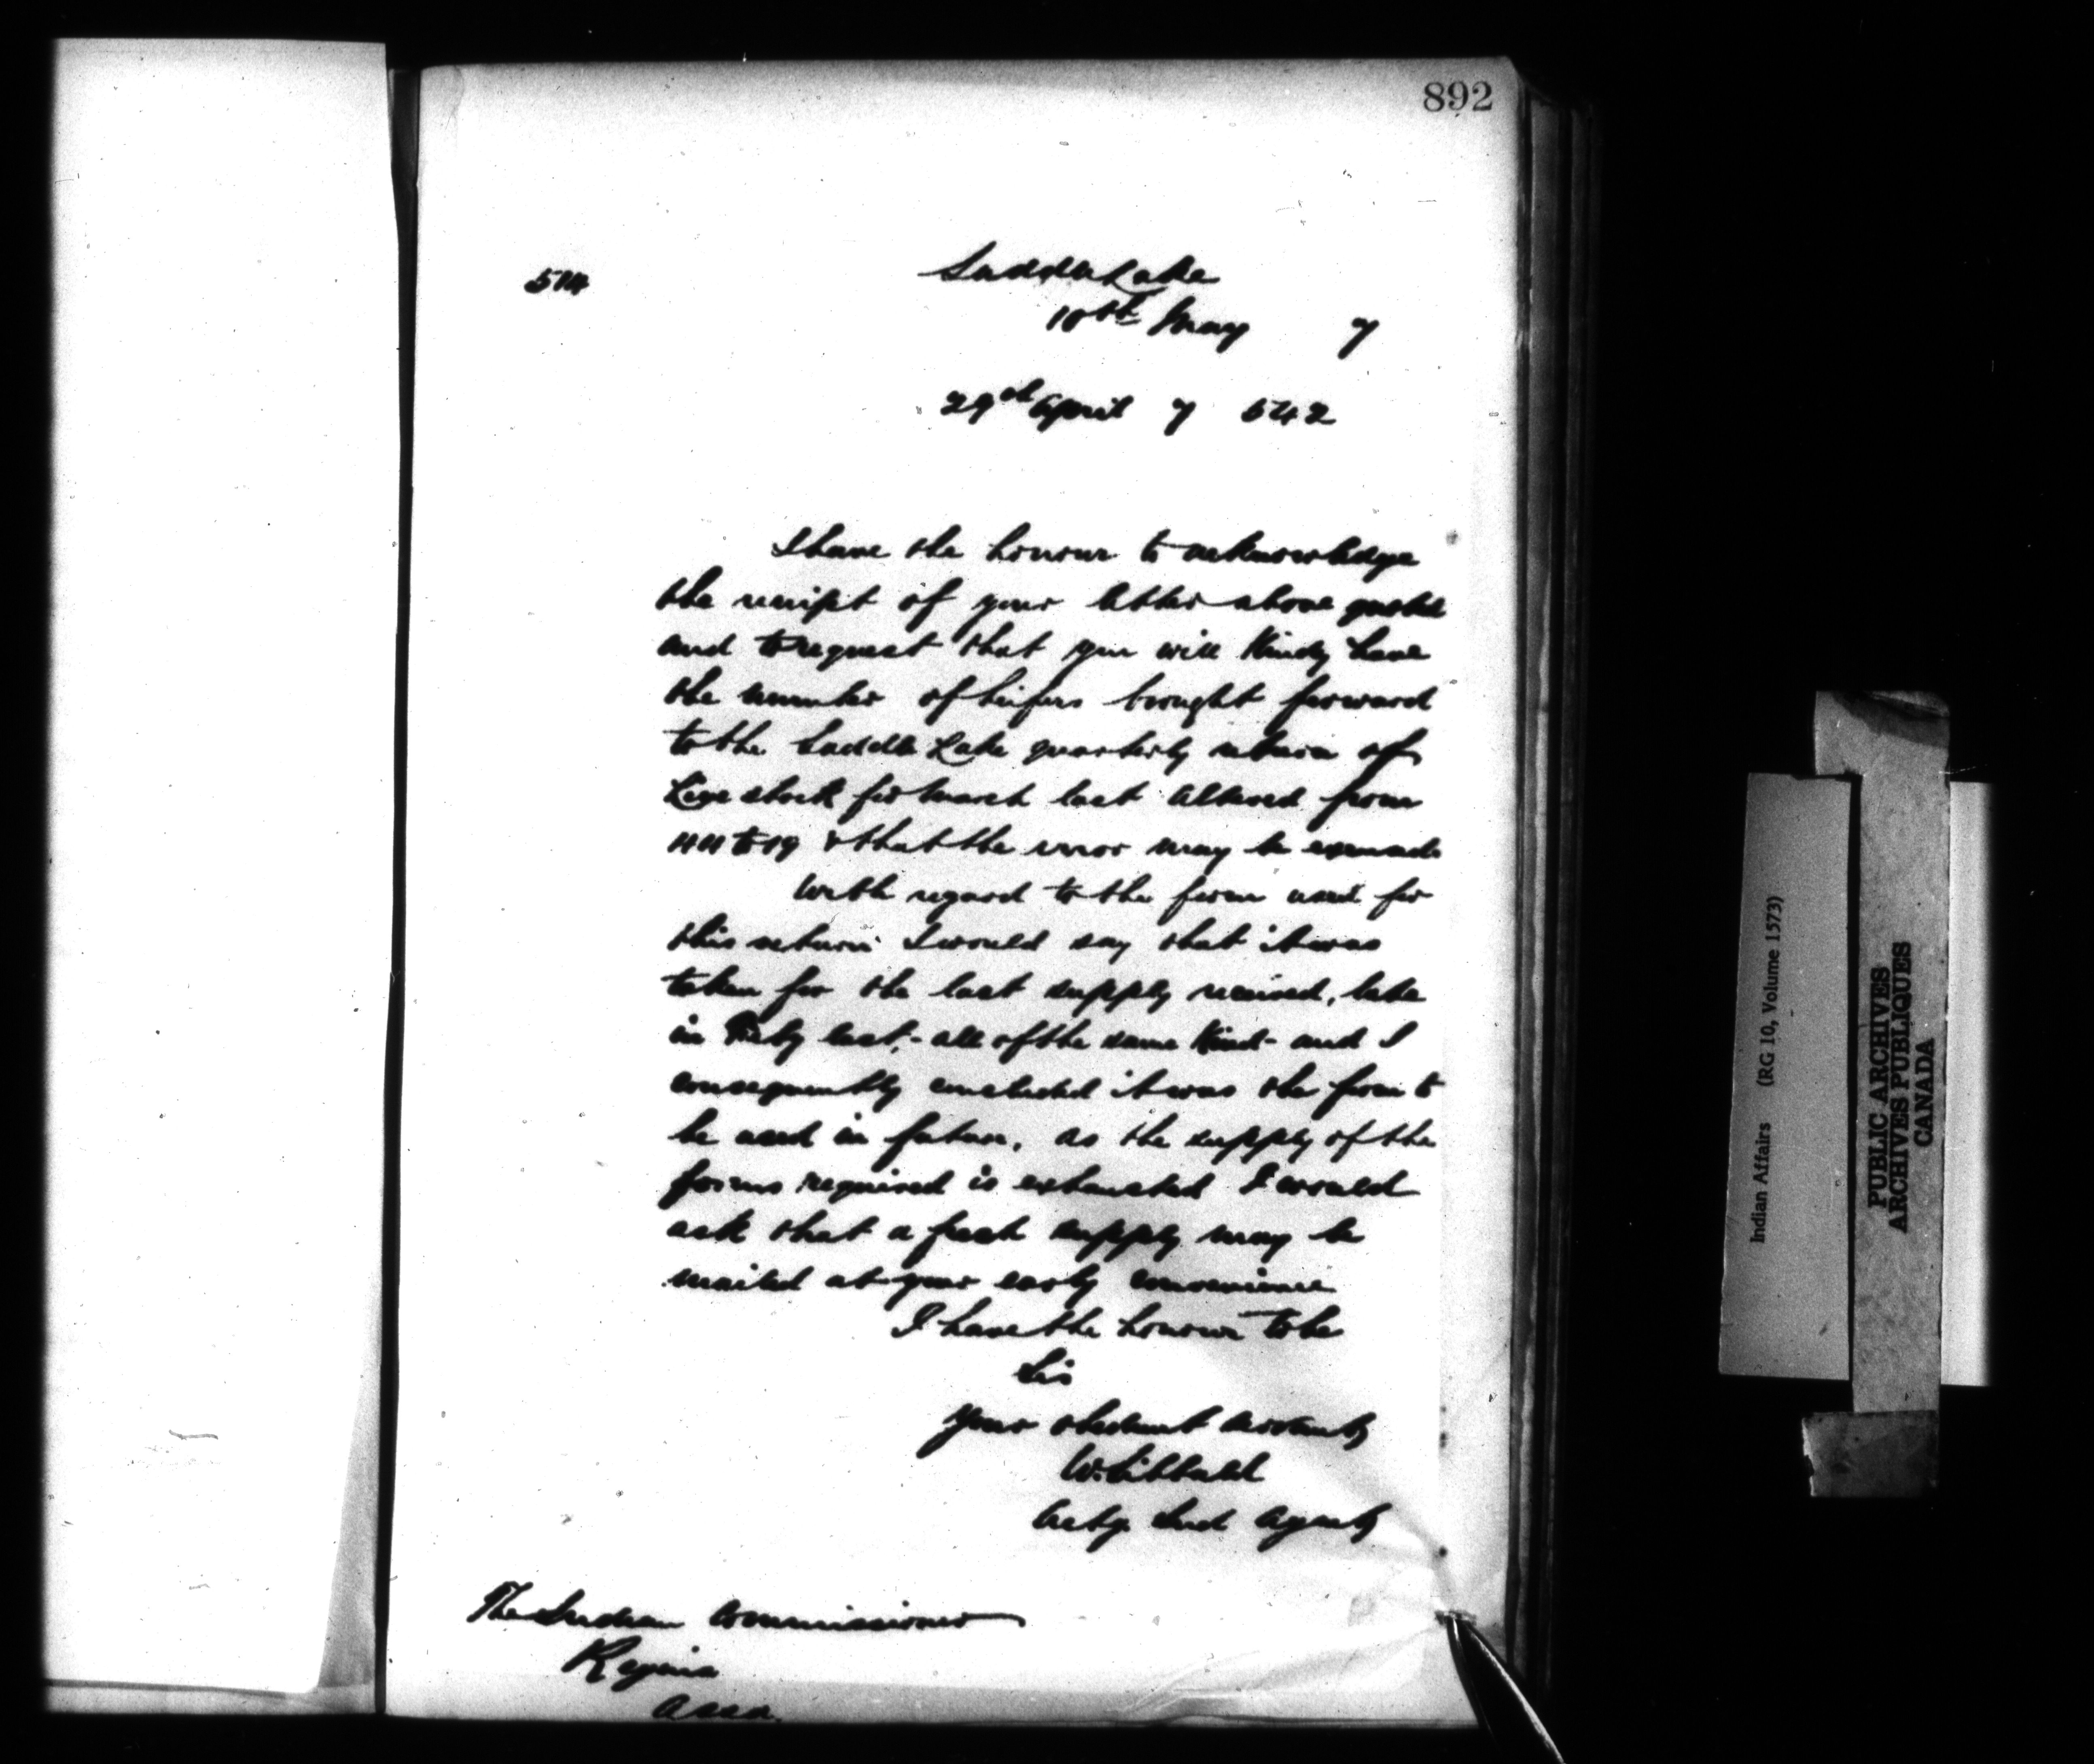 892
514
Saddle Lake
10th May 7
29th April 7 542
I have the honour to acknowledge
the receipt of your letter above quoted
and to request that you will Kindly have
the number of heifers brought forward
to the Saddle Lake quarterly return of
Live stock for March last altered from
to 19 & that the error may be excused
With regard to the form used for
this return I would say that it was
taken for the last supply received, late
in July last, - all of the same Kind - and I
consequently concluded it was the form to
be used in future, as the supply of the
forms required is exhausted I would
ask that a fresh supply may be
mailed at your early convenience
I have the honour to be
Sir
Your obedient servant
W. Sibbald
Actg. Ind Agent
The Indian Commissioner
Regina
Assa.
Indian Affairs (RG 10, Volume 1573)
PUBLIC ARCHIVES
ARCHIVES PUBLIQUES
CANADA